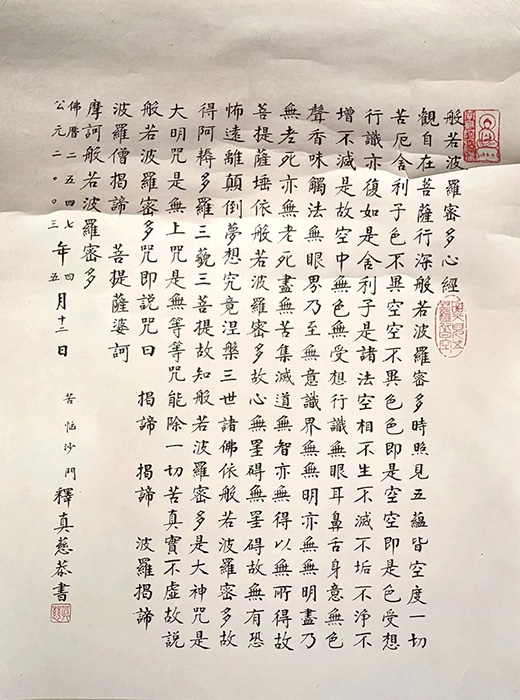 般若波羅密多心經
觀自在菩薩行深般若波羅密多時照見五蘊皆空度一切
苦厄舍利子色不異空空不異色色即是空空即是色受想
行識亦復如是舍利子是諸法空相不生不滅不垢不淨不
增不減是故空中無色無受想行識無眼耳鼻舌身意無色
聲香味觸法無眼界乃至無意識界無無明亦無無明盡乃
無老死亦無老死盡無苦集滅道無智亦無得以無所得故
菩提薩埵依般若波羅密多故心無罣碍無罣碍故無有恐
怖遠離顛倒夢想究竟涅槃三世諸佛依般若波羅密多故
得阿耨多羅三藐三菩提故知般若波羅密多是大神咒是
大明咒是無上咒是無等等咒能除一切苦真實不虛故説
般若波羅密多咒即説咒曰 揭諦 揭諦 波羅揭諦
波羅僧揭諦 菩提薩婆訶
摩訶般若波羅密多
佛曆二五四七 四
公元二○○三 年 五 月十三日 苦惱沙門 釋真慈恭書